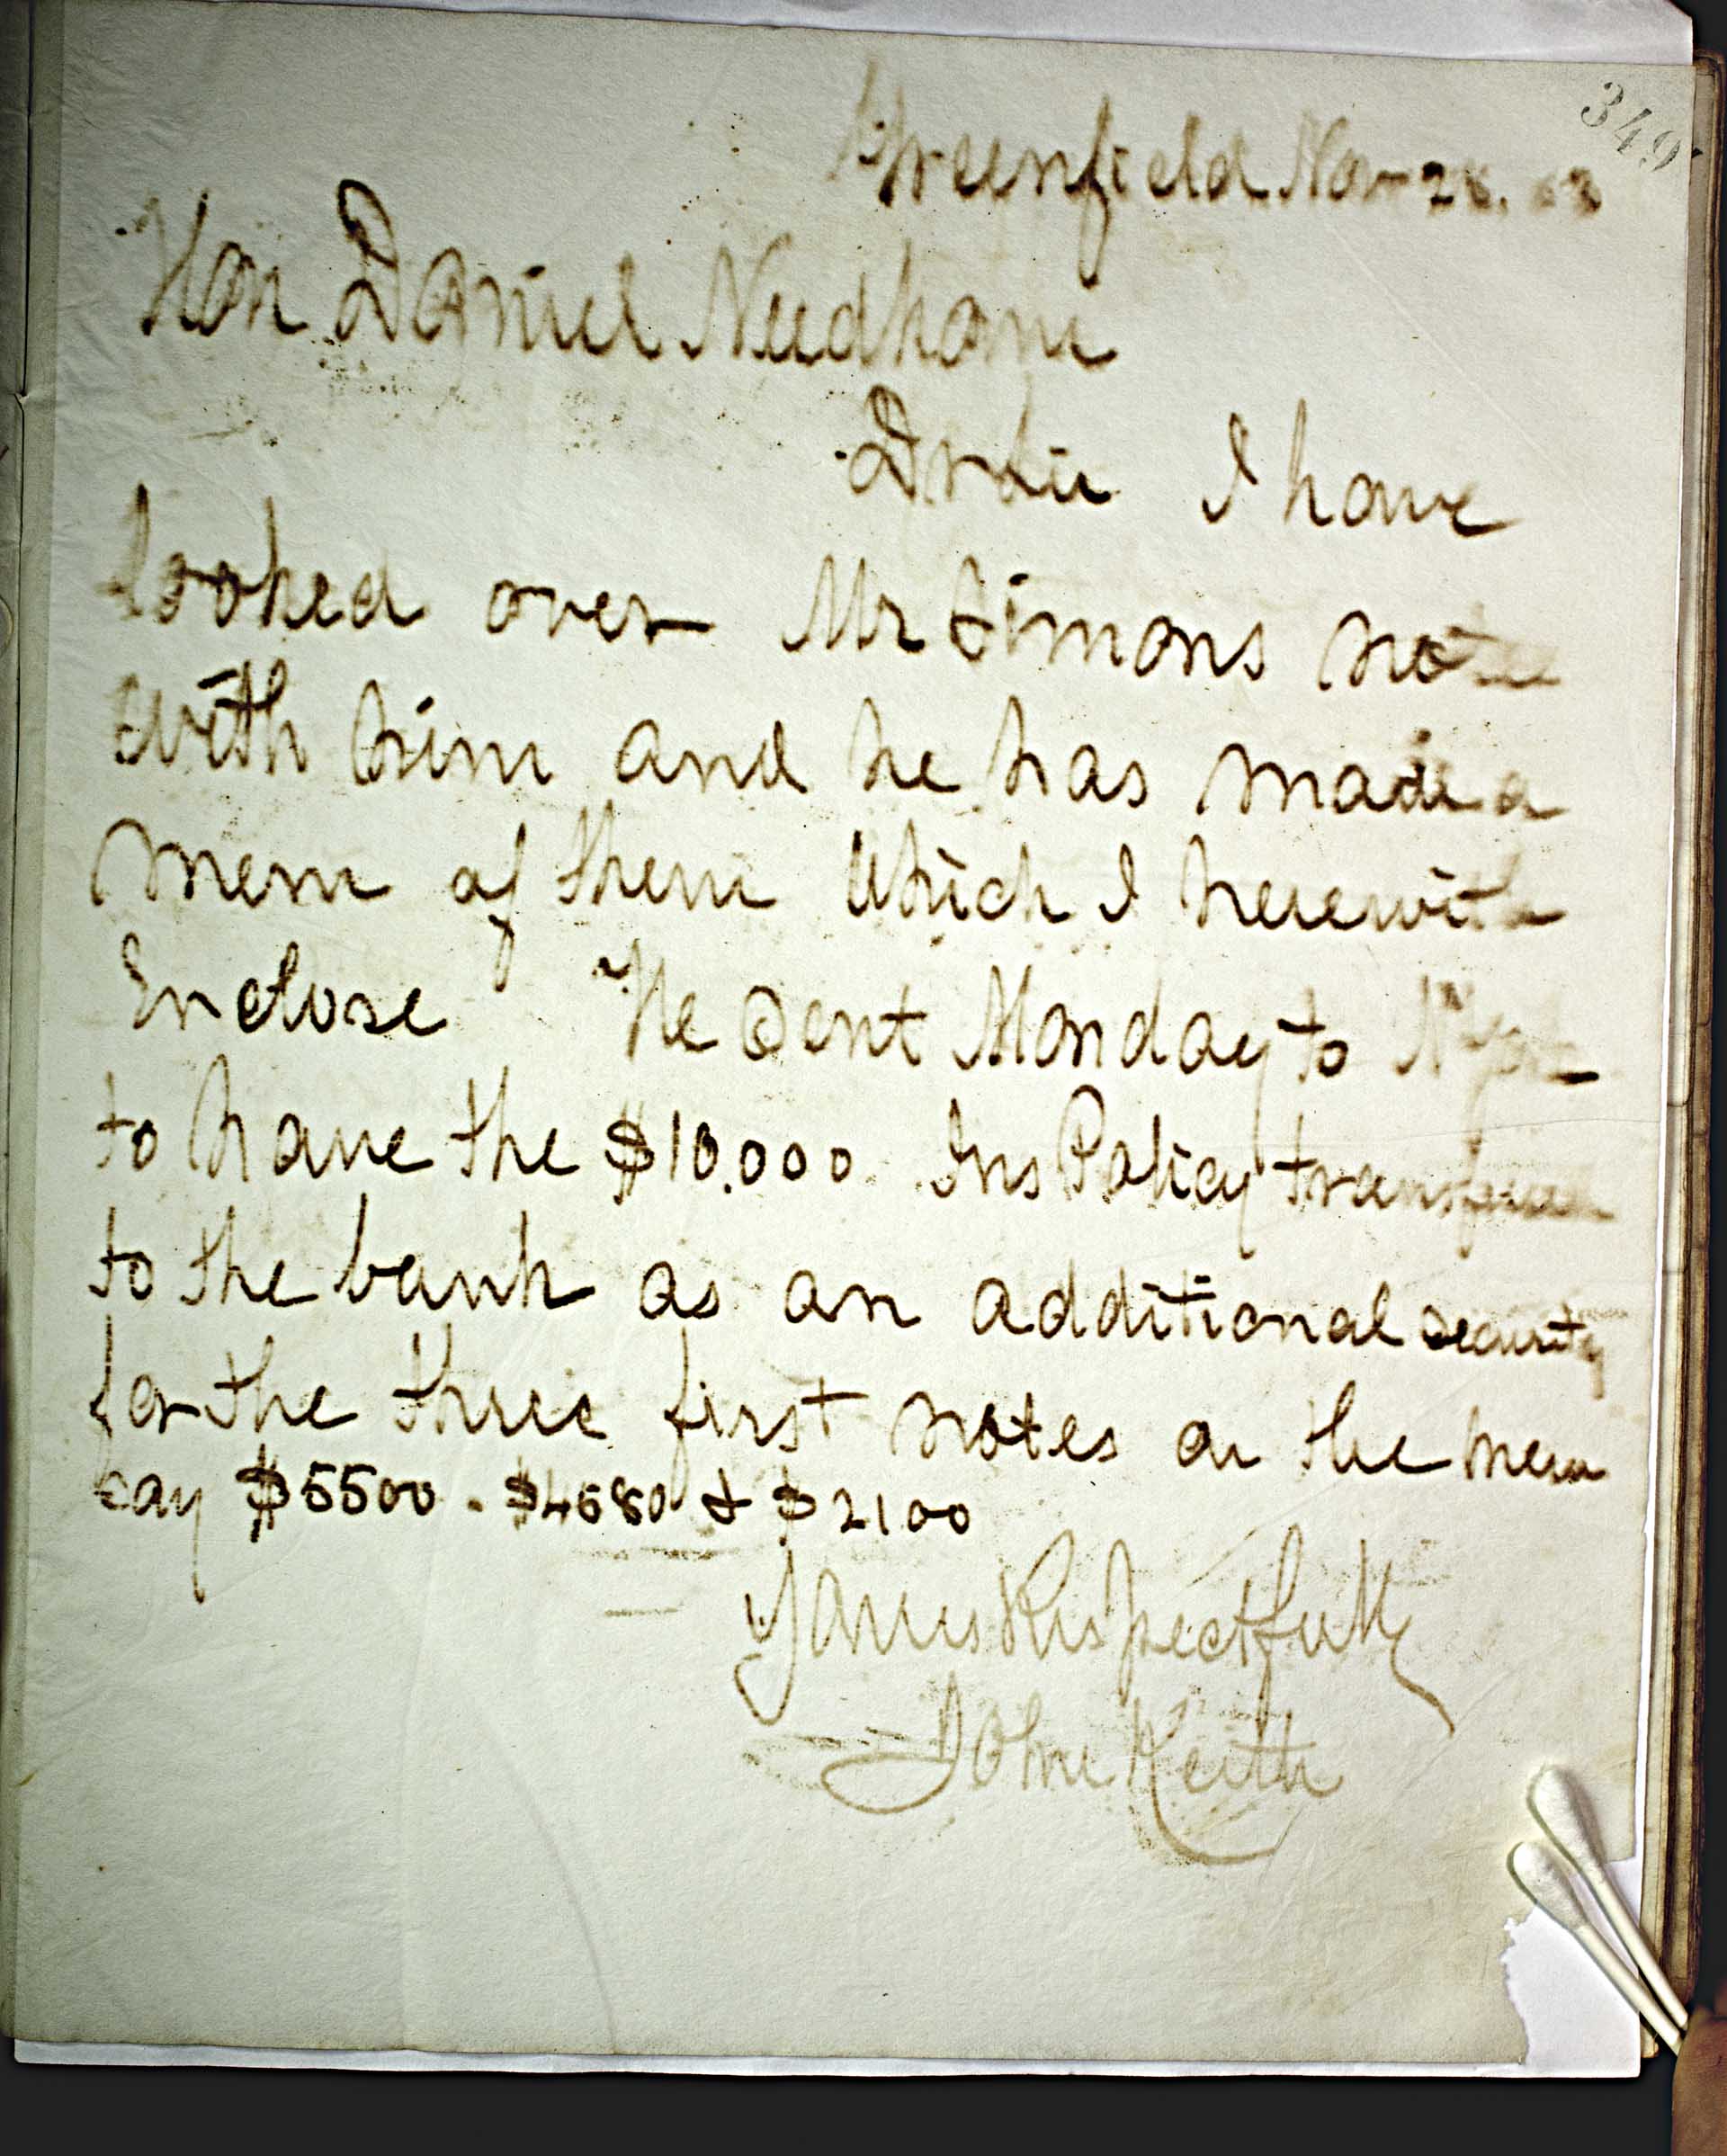 349
Greenfield Nov 28.
Hon Daniel Needham
Dr Sir I have
looked over Mr Simons notes
with him and he has made a
mem of them which I herewith
Enclose He Sent Monday to N York
to have the $10.000 Ins Policy
to the bank as an additional security
for the three first notes on the mem
say $5500 - $4680 & $2100
Yours Respectfully
John Keith